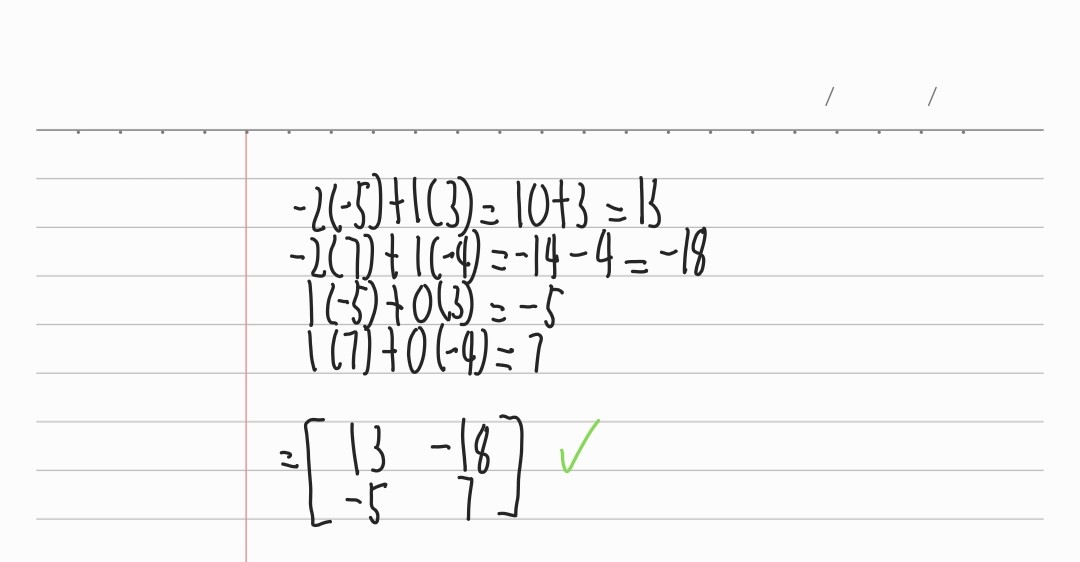 -2(-5)+1(3)=10+3=13
-2(7)+1(-4)=-14-4=-18
1(-5)+0(3)=-5
1(7)+0(-4)=7
=[13 -18
-5 7] ✓